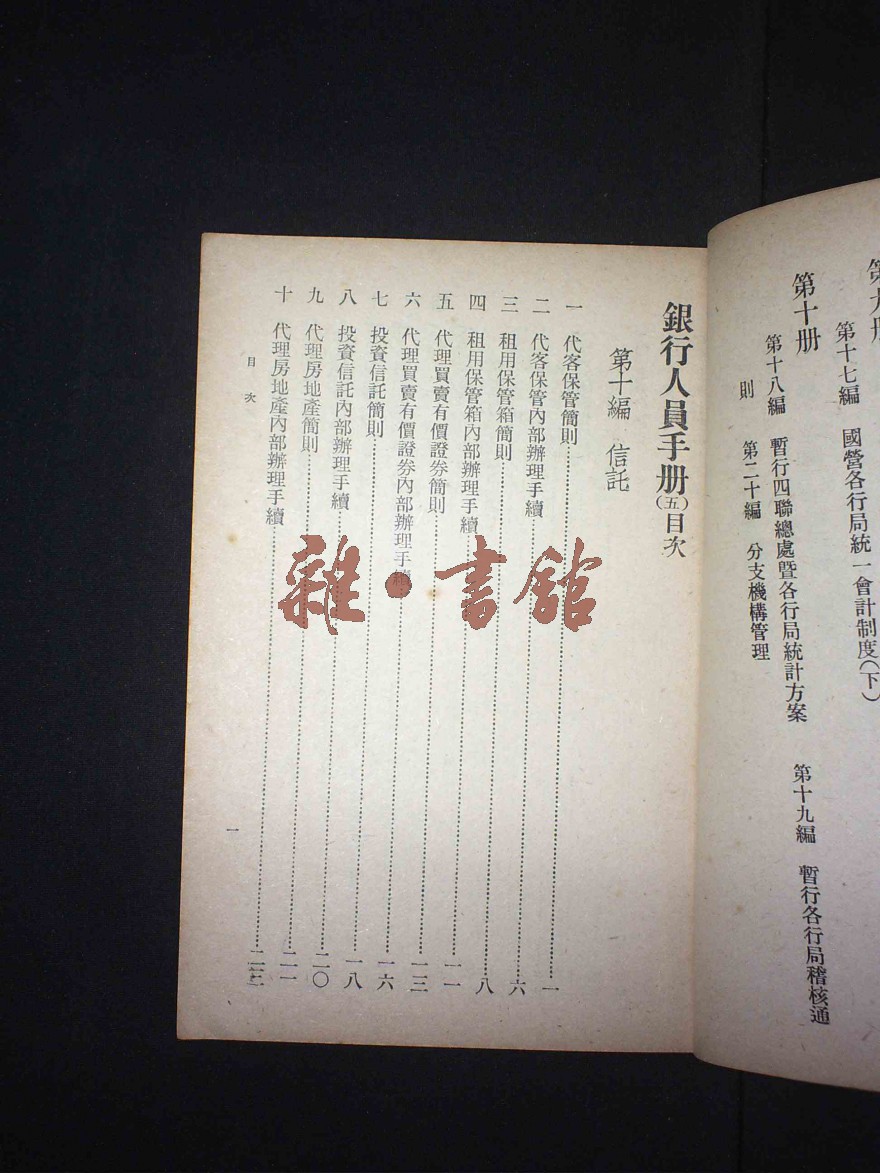 第九册
第十七編 國營各行局統一會計制度(下)
第十册
第十八編 暫行四聯總處暨各行局統計方案 第十九編 暫行各行局稽核通
則 第二十編 分支機構管理
銀行人員手册(五)目次
第十編 信託
一 代客保管簡則……一
二 代客保管內部辦理手續……六
三 租用保管箱簡則……八
四 租用保管箱內部辦理手續……一一
五 代理買賣有價證券簡則……一三
六 代理買賣有價證券內部辦理手續……一六
七 投資信託簡則……一八
八 投資信託內部辦理手續……二〇
九 代理房地產簡則……二一
十 代理房地產內部辦理手續……二三
目次
一
雜·書館